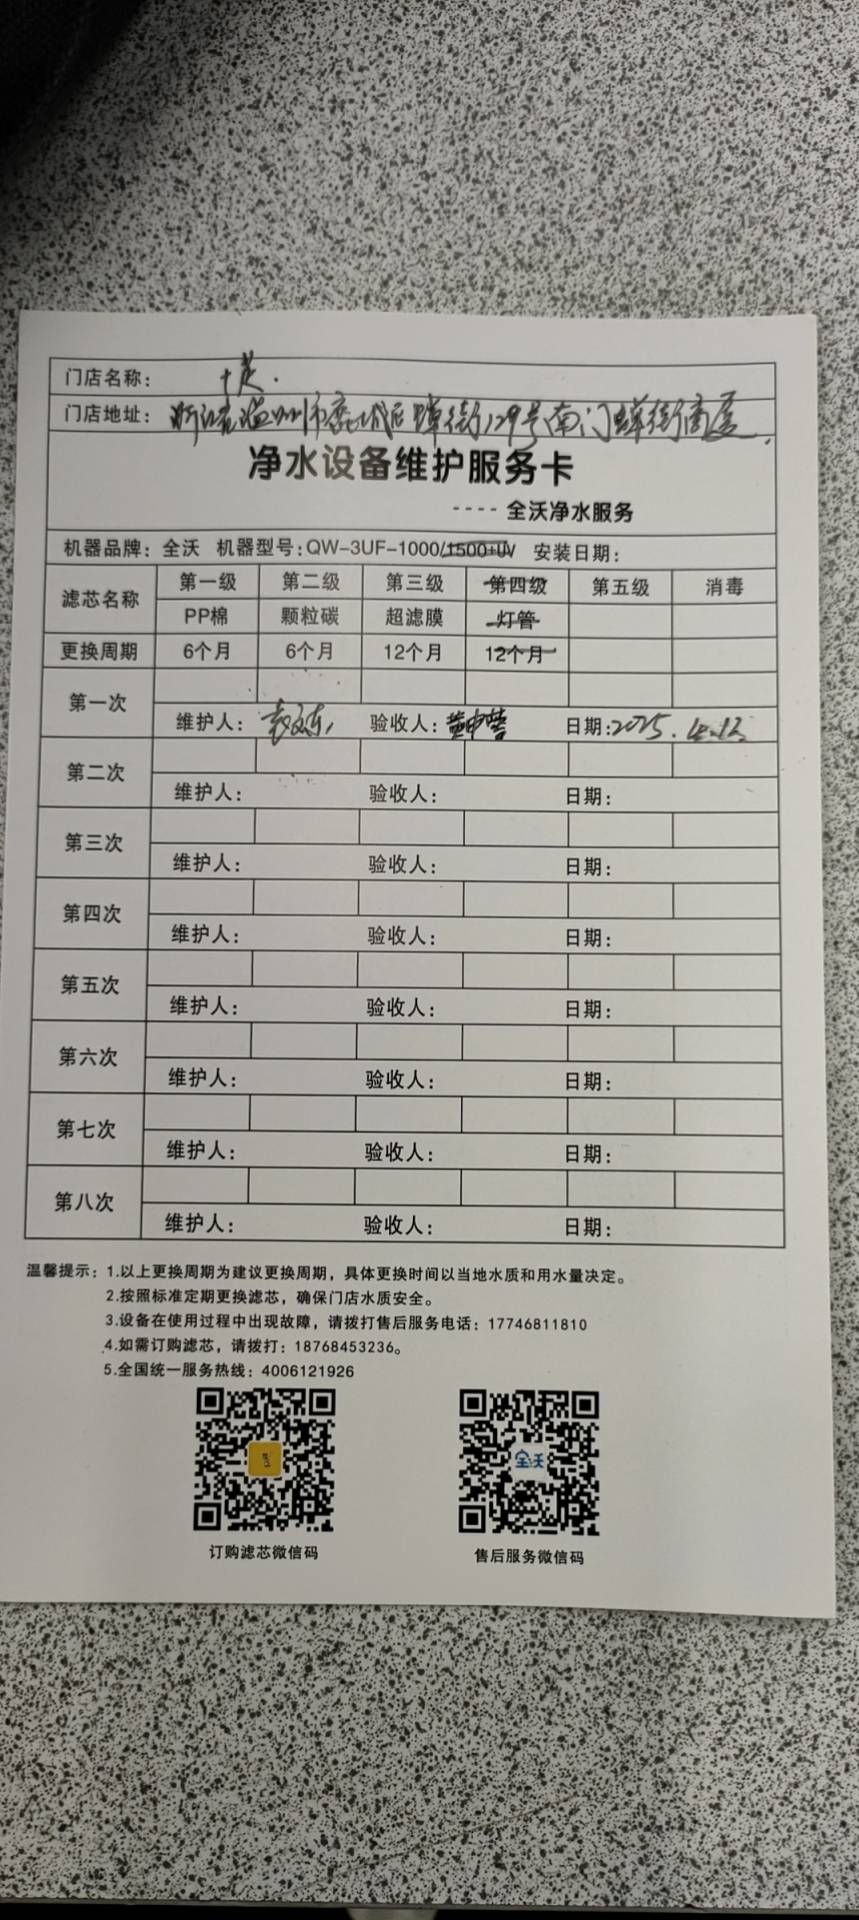 门店名称：
门店地址：浙江省温州市鹿城区蝉街129号南门蝉街商厦
净水设备维护服务卡
---- 全沃净水服务
机器品牌：全沃 机器型号：QW-3UF-1000/1500+UV 安装日期：
滤芯名称 第一级 第二级 第三级 第四级 第五级 消毒
PP棉 颗粒碳 超滤膜 灯管
更换周期 6个月 6个月 12个月 12个月
第一次
维护人： 验收人： 日期：2025.4.12
第二次
维护人： 验收人： 日期：
第三次
维护人： 验收人： 日期：
第四次
维护人： 验收人： 日期：
第五次
维护人： 验收人： 日期：
第六次
维护人： 验收人： 日期：
第七次
维护人： 验收人： 日期：
第八次
维护人： 验收人： 日期：
温馨提示：1.以上更换周期为建议更换周期，具体更换时间以当地水质和用水量决定。
2.按照标准定期更换滤芯，确保门店水质安全。
3.设备在使用过程中出现故障，请拨打售后服务电话：17746811810
4.如需订购滤芯，请拨打：18768453236。
5.全国统一服务热线：4006121926
全沃
订购滤芯微信码 售后服务微信码